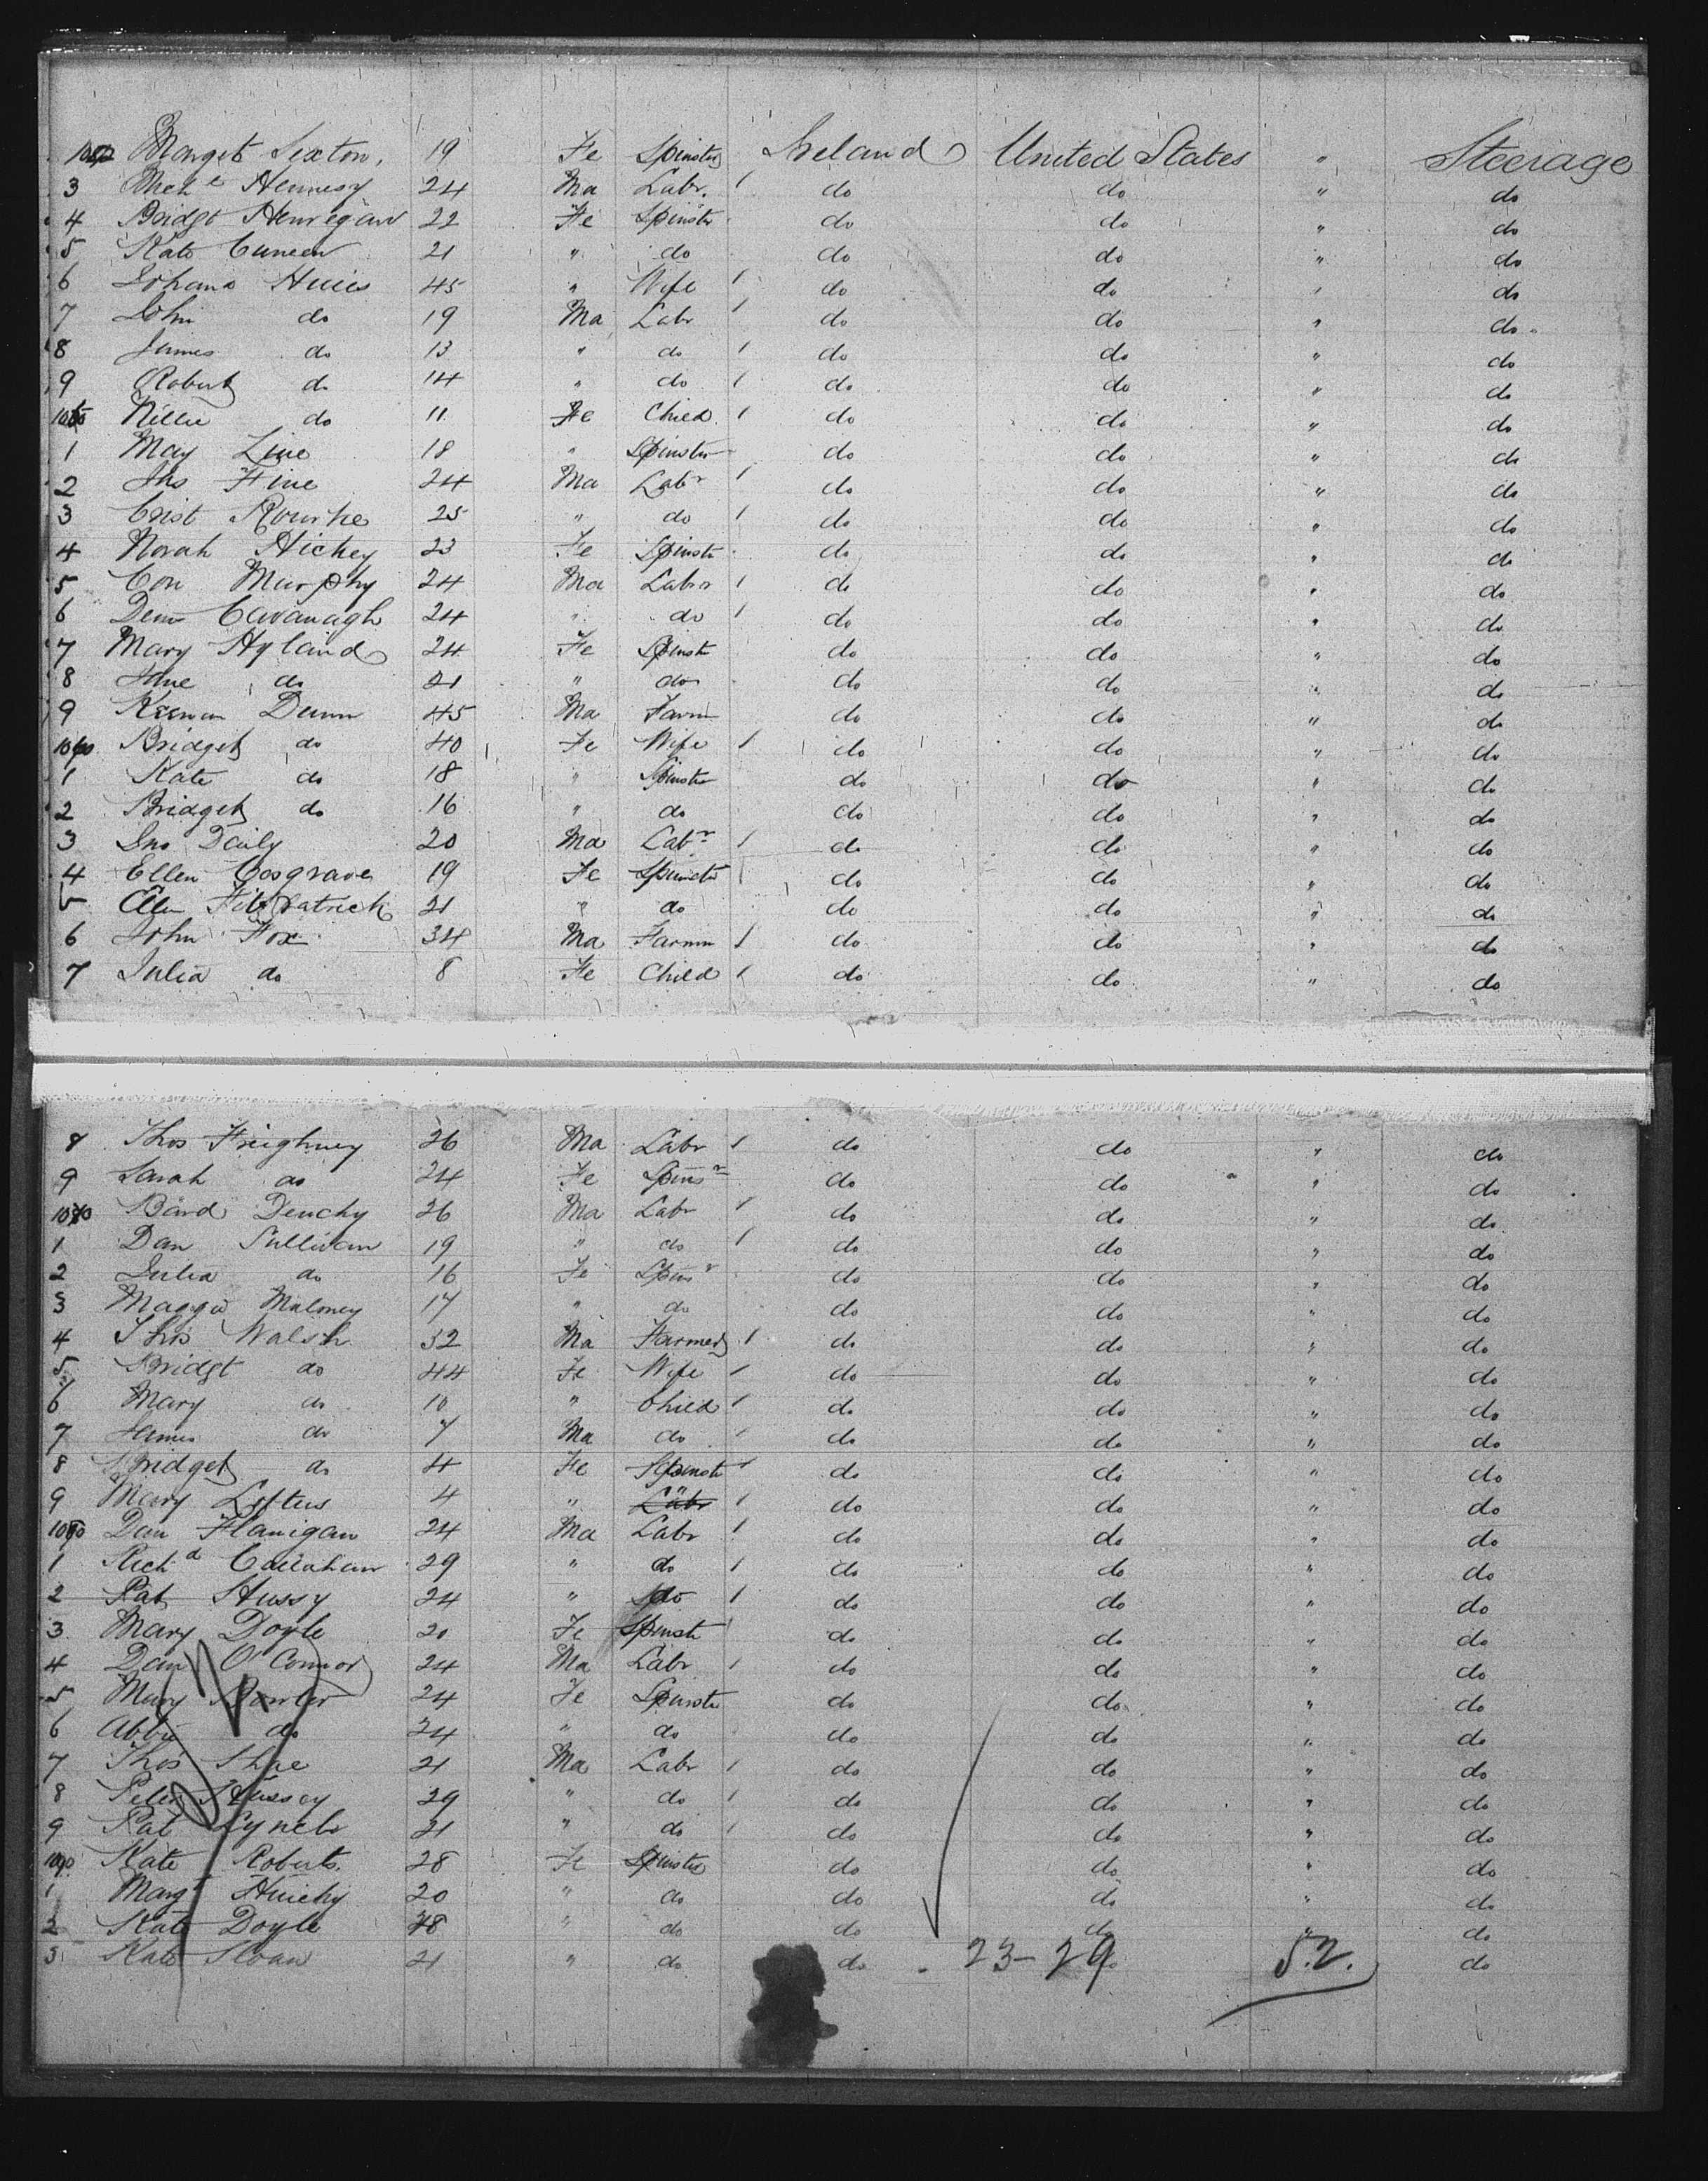 Marget Sexton. 19 Fe Spinster Ireland United States " Steerage
3 Mich e Hennesy 24 Ma Labr. 1 do do " do
4 Bridgt Hennegan 22 Fe Spinstr do do " do
5 Kate Cuneen 21 " do do do " do
6 Johana 45 " Wife 1 do do " do
7 John do 19 Ma Labr 1 do do " do
8 James do 13 " do 1 do do " do
9 Robert do 14 " do 1 do do " do
Nellie do 11 Fe Child 1 do do " do
1 May Line 18 " Spinstr do do " do
2 Jno Fine 24 Ma Labr 1 do do " do
3 Crist Rourke 25 " do 1 do do " do
4 Norah Hickey 23 Fe Spinstr do do " do
5 Con Murphy 24 Ma Labr 1 do do " do
6 Denis Cavanagh 24 " do 1 do do " do
7 Mary Hyland 24 Fe Spinstr do do " do
8 Jane do 21 " do do do " do
9 Keenan Dunn 45 Ma Farm do do " do
1060 Bridget do 40 Fe Wife 1 do do " do
1 Kate do 18 " Spinstr do do " do
2 Bridget do 16 " do do do " do
3 Jno Daily 20 Ma Labr 1 do do " do
4 Ellen Cosgrave 19 Fe Spinstr do do " do
5 Ellen Fitzpatrick 21 " do do do " do
6 John Fox 34 Ma Farmr 1 do do " do
7 Julia do 8 Fe Child 1 do do " do
8 Thos Freighney 26 Ma Labr 1 do do " do
9 Sarah do 24 Fe Spinsr do do " do
Denchy 26 Ma Labr 1 do do " do
1 Dan Sullivan 19 " do 1 do do " do
2 Julia do 16 Fe Spinsr do do " do
3 Maggie Maloney 17 " do do do " do
4 Thos Walsh 32 Ma Farmer 1 do do " do
5 Bridgt do 44 Fe Wife 1 do do " do
6 Mary do 10 " Child 1 do do " do
7 James do 7 Ma do 1 do do " do
8 Bridget do 4 Fe Spinstr 1 do do " do
9 Mary Loftus 4 " " 1 do do " do
Dan Flanigan 24 Ma Labr 1 do do " do
1 Richd Callahan 29 " do 1 do do " do
2 Pat Hussy 24 " do 1 do do " do
3 Mary Doyle 20 Fe Spinstr do do " do
4 Dan O'Connor 24 Ma Labr 1 do do " do
5 Mary 24 Fe Spinstr do do " do
6 Abbie do 24 " do do do " do
7 Thos Shae 21 Ma Labr 1 do do " do
8 Peter Hussey 29 " do 1 do do " do
9 Pat Lynch 21 " do 1 do do " do
1090 Kate Roberts. 28 Fe Spinster do do " do
1 Margt 20 " do do do " do
2 Kate Doyle " do do do " do
3 Kate Sloan 21 " do do 23-29 52. do